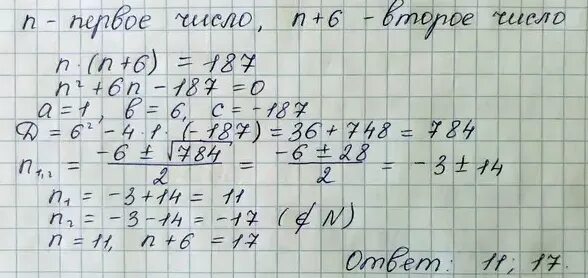 n - первое число, n+6 - второе число
n·(n+6) = 187
n² + 6n - 187 = 0
a = 1, в = 6, c = -187
Д = 6² - 4·1·(-187) = 36 + 748 = 784
n₁,₂ = (-6 ± √784)/2 = (-6 ± 28)/2 = -3 ± 14
n₁ = -3+14 = 11
n₂ = -3-14 = -17 (∉ N)
n = 11, n+6 = 17
Ответ: 11; 17.